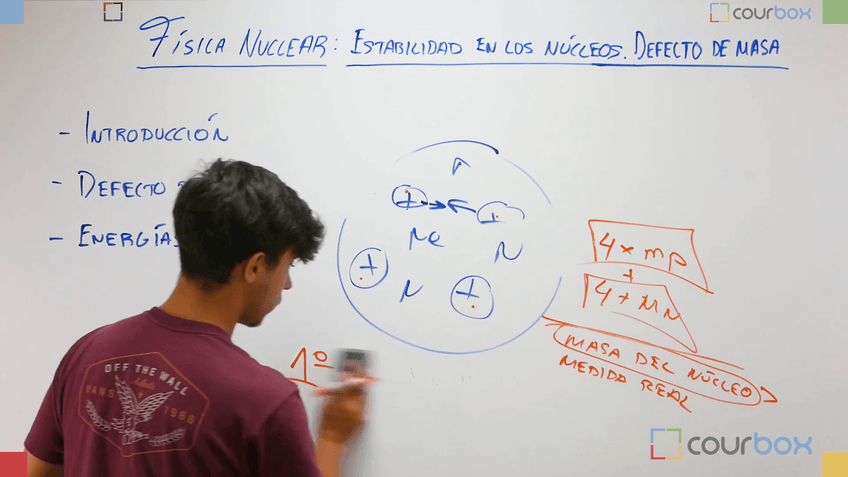 courbox
FÍSICA NUCLEAR: ESTABILIDAD EN LOS NÚCLEOS. DEFECTO DE MASA
- INTRODUCCIÓN
- DEFECTO
- ENERGÍAS
+ +
Ne N
+ N +
4 x mp
+
4 + MN
MASA DEL NÚCLEO
MEDIDA REAL
1º
OFF THE WALL
VANS 1966
courbox